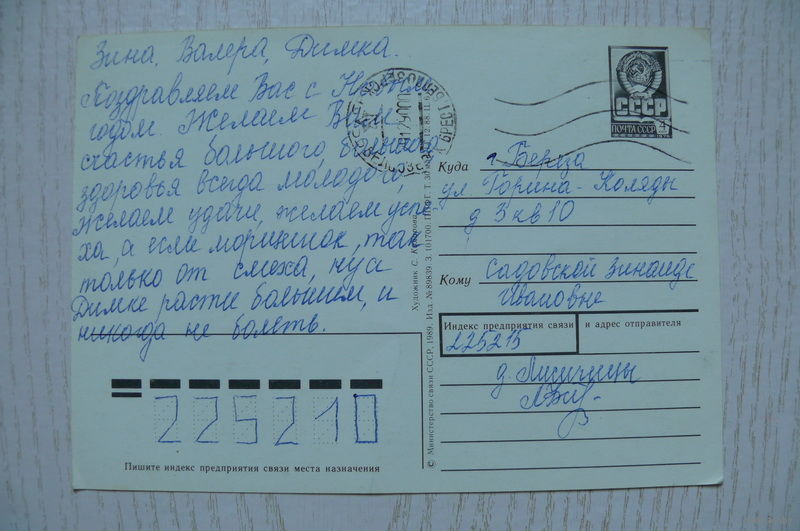 Зина, Валера, Димка.
Поздравляем Вас с Новым
годом. Желаем Вам
счастья большого,
здоровья всегда молодого,
желаем удачи, желаем успе-
ха, а если морщинок, так
только от смеха, ну а
Димке расти большим, и
никогда не болеть.
225210
Пишите индекс предприятия связи места назначения
© Министерство связи СССР, 1989. Изд. № 89839. З. 101700. ППФ Г. Т. 12.88. П. 6
Художник С.
СССР
ПОЧТА СССР
4
Куда г. Береза
ул. Горина-Коляды
д 3 кв 10
Кому Садовской Зинаиде
Ивановне
Индекс предприятия связи и адрес отправителя
225215
д.